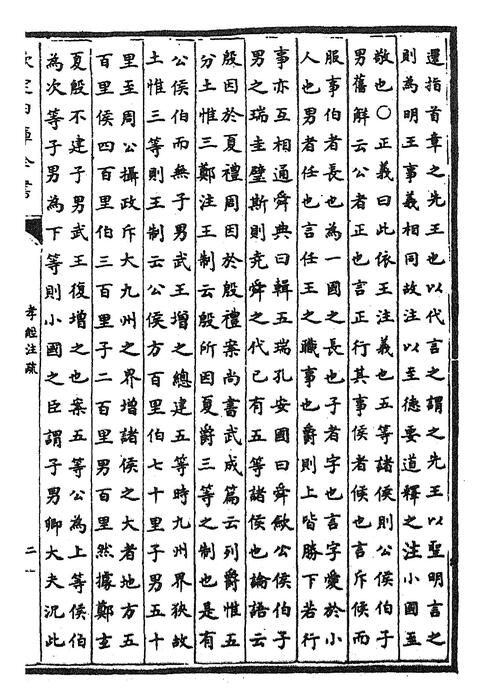 還指首章之先王也以代言之謂之先王以聖明言之
則為明王事義相同故注以至德要道釋之注小國至
敬也○正義曰此依王注義也五等諸侯則公侯伯子
男舊解云公者正也言正行其事侯者候也言斥候而
服事伯者長也為一國之長也子者字也言字愛於小
人也男者任也言任王之職事也爵則上皆勝下若行
事亦互相通舜典曰輯五瑞孔安國曰舜斂公侯伯子
男之瑞圭璧斯則堯舜之代已有五等諸侯也論語云
殷因於夏禮周因於殷禮案尚書武成篇云列爵惟五
分土惟三鄭注王制云殷所因夏爵三等之制也是有
公侯伯而無子男武王增之總建五等時九州界狹故
土惟三等則王制云公侯方百里伯七十里子男五十
里至周公攝政斥大九州之界增諸侯之大者地方五
百里侯四百里伯三百里子二百里男百里然據鄭玄
夏殷不建子男武王復增之也案五等公為上等侯伯
為次等子男為下等則小國之臣謂子男卿大夫況此
欽定四庫全書
孝經注疏
二